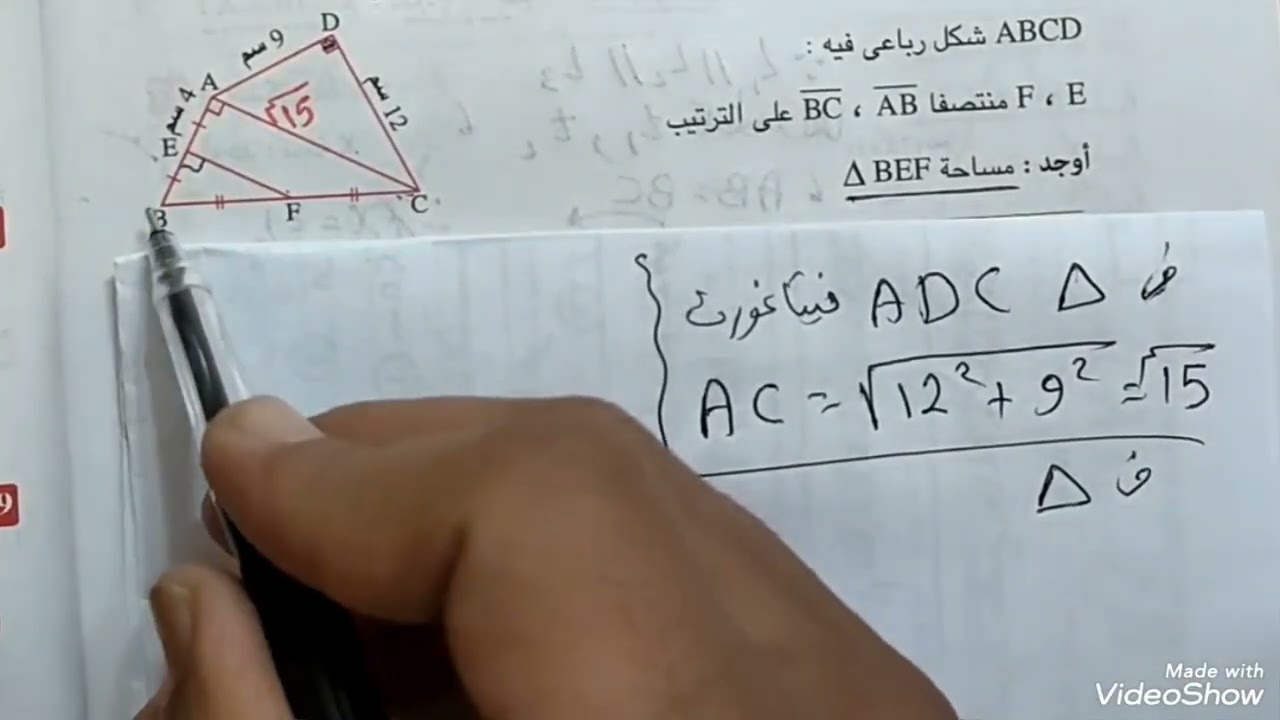 ABCD شكل رباعى فيه :
F ، E منتصفا AB ، BC على الترتيب
أوجد : مساحة Δ BEF
D
9 سم
A
√15
12 سم
4 سم
E
B
F
C
9
فى Δ ADC فيثاغورث
AC = √12² + 9² = √15
فى Δ
Made with
VideoShow